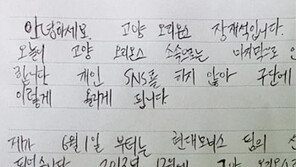 안녕하세요. 고양 오리온스 장재석입니다.
오늘이 고양 오리온스 소속으로는 마지막으로
합니다 개인 SNS를 하지 않아 구단에
이렇게 올리게 됩니다
제가 6월 1일 부터는 현대모비스 팀의
2012년 12월에 고양